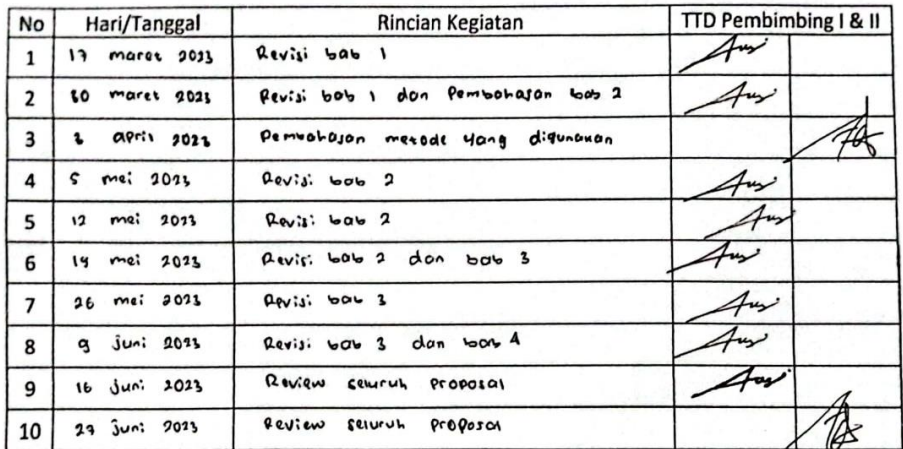 No Hari/Tanggal Rincian Kegiatan TTD Pembimbing I & II
1 17 maret 2023 Revisi bab 1
2 30 maret 2023 Revisi bab 1 dan Pembahasan bab 2
3 april 2023 Pembahasan metode yang digunakan
4 5 mei 2023 Revisi bab 2
5 12 mei 2023 Revisi bab 2
6 19 mei 2023 Revisi bab 2 dan bab 3
7 26 mei 2023 Revisi bab 3
8 9 juni 2023 Revisi bab 3 dan bab 4
9 16 juni 2023 Review seluruh proposal
10 27 juni 2023 Review seluruh proposal